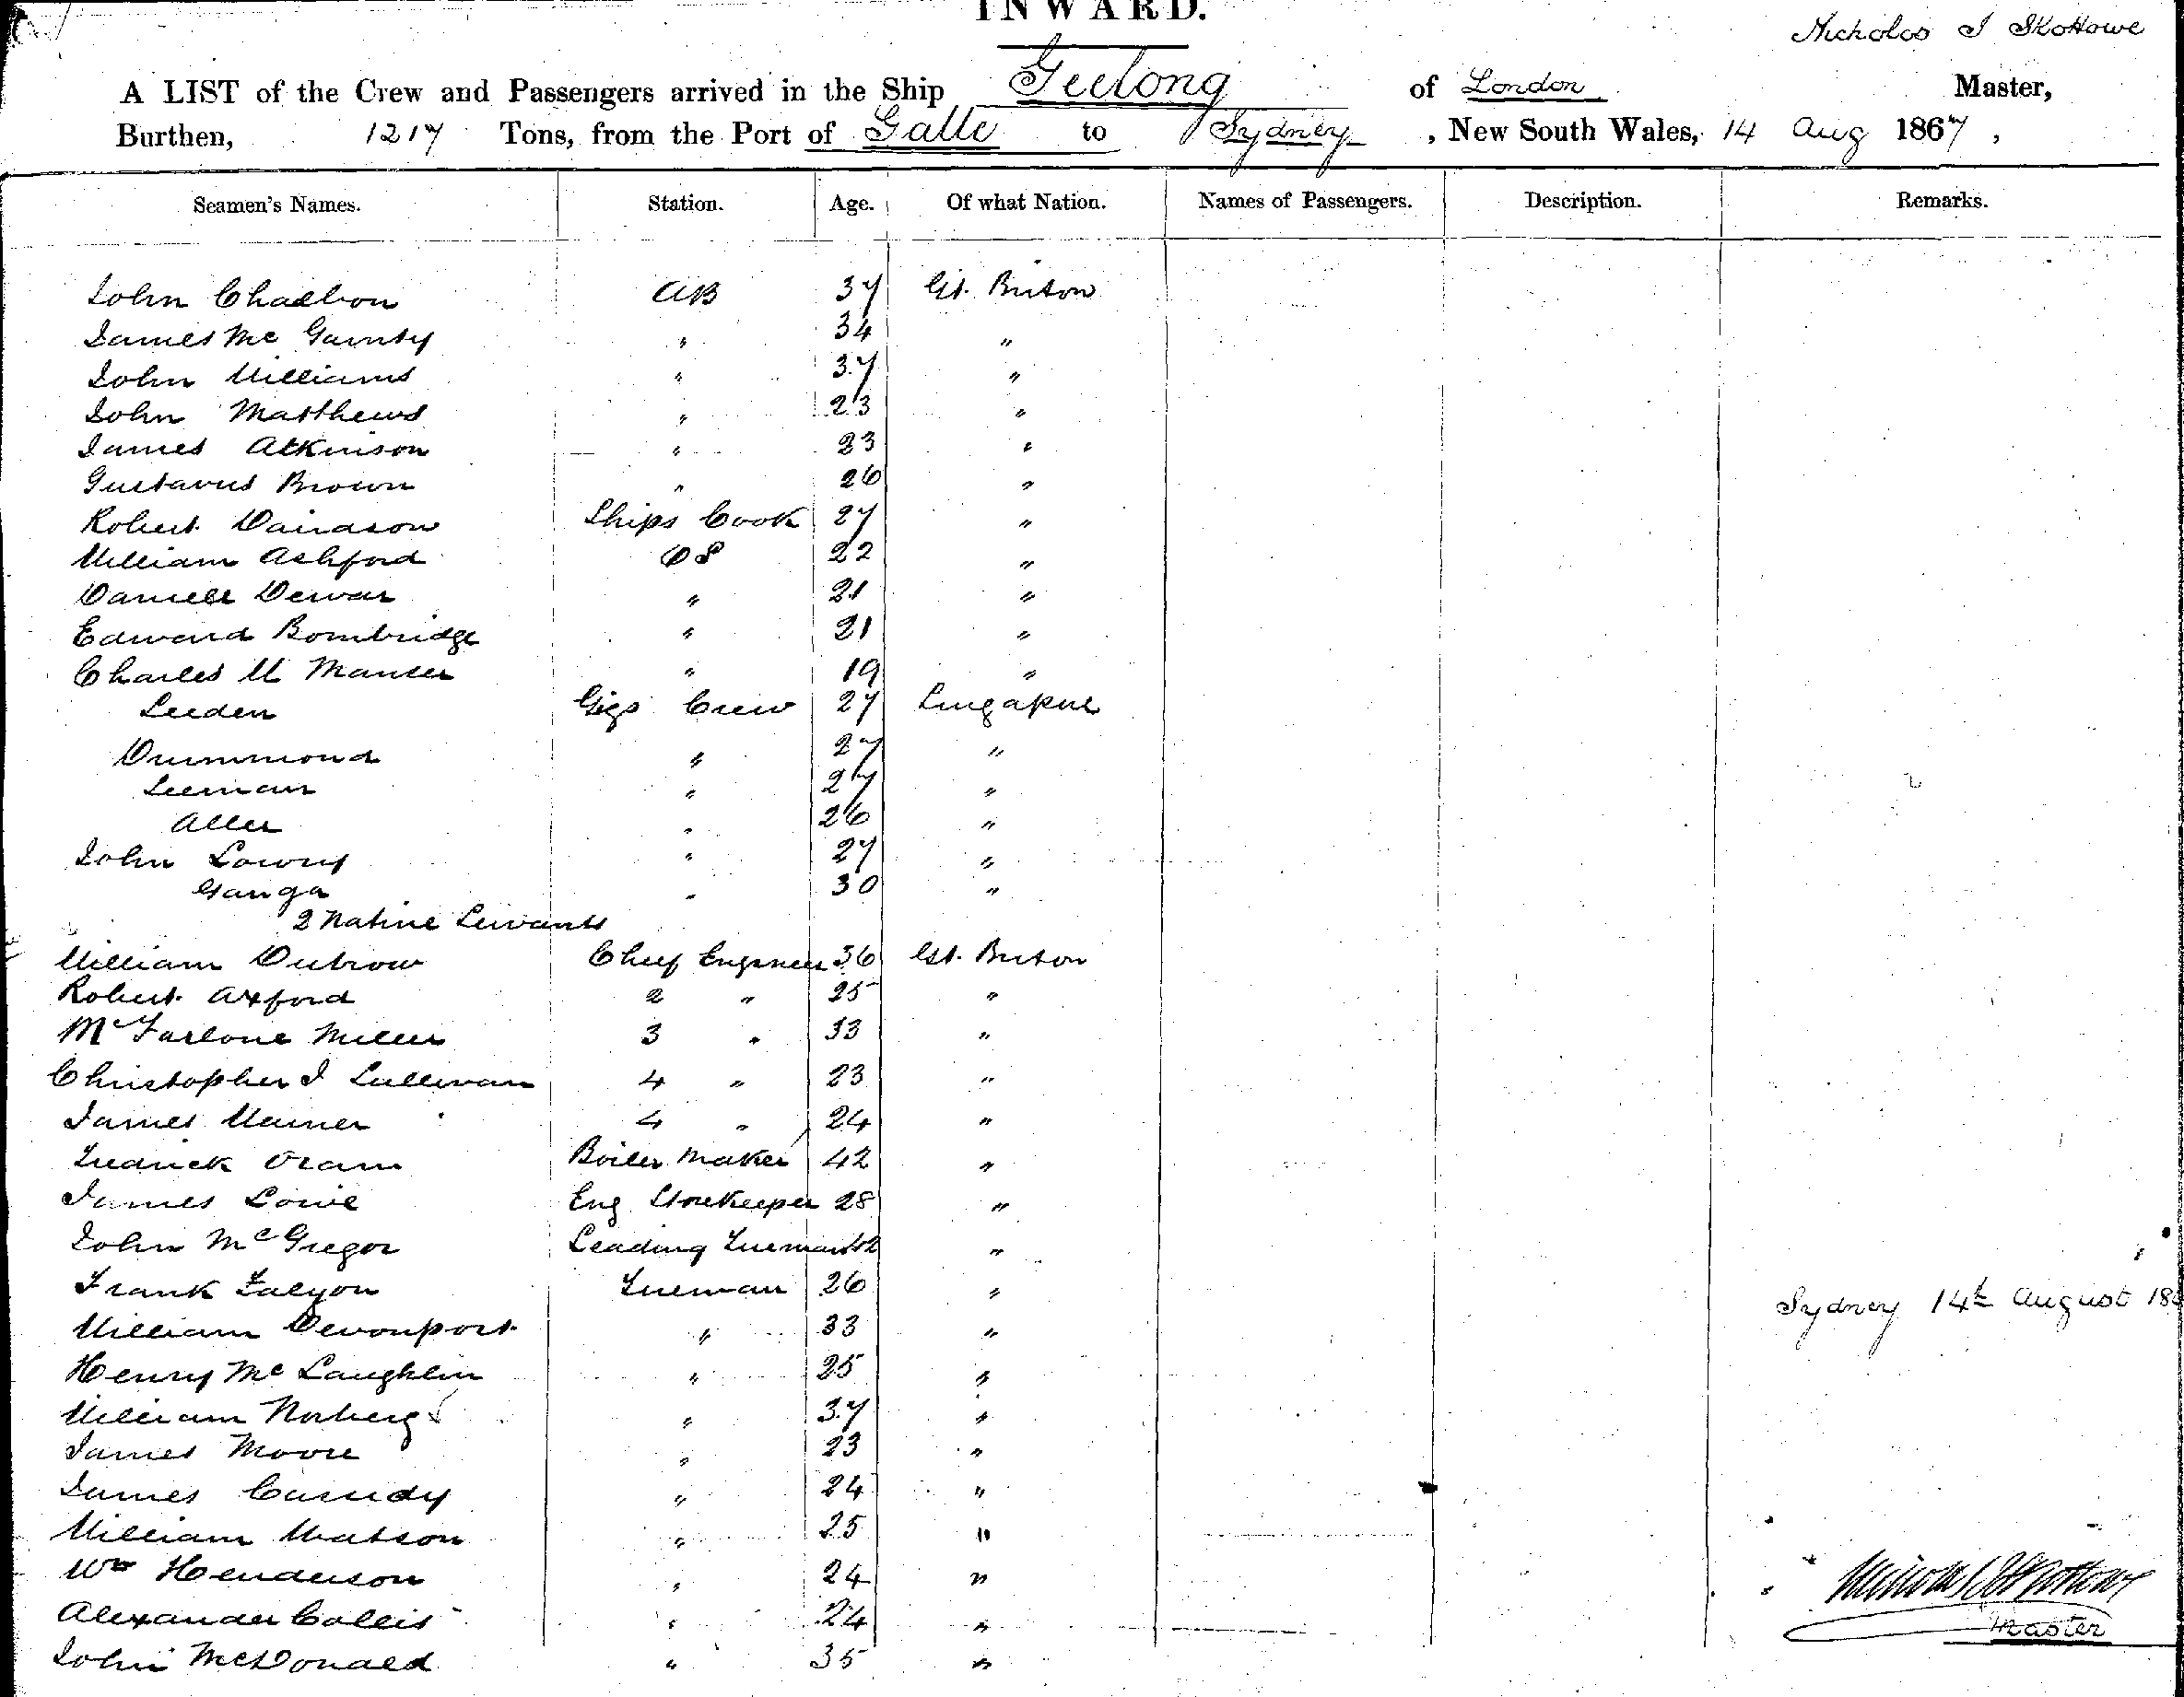 INWARD.
Nicholas J Skottowe
A LIST of the Crew and Passengers arrived in the Ship Geelong of London Master,
Burthen, 1217 Tons, from the Port of Galle to Sydney, New South Wales, 14 Aug 1867,
Seamen's Names. Station. Age. Of what Nation. Names of Passengers. Description. Remarks.
John AB 37 Gt. Briton
James Mc " 34 "
John Williams " 37 "
John Matthews " 23 "
James Atkinson " 23 "
Gustavus Brown " 26 "
Robert Davidson Ships Cook 27 "
William Ashford OS 22 "
Daniell Dewar " 21 "
Edward Bombridge " 21 "
Charles W Manser " 19 "
Seeden Gigs Crew 27 Singapore
Drummond " 27 "
Seeman " 27 "
Aller " 26 "
John Lowry " 27 "
Ganga " 30 "
2 Native Servants
William Dutrow Chief Engineer 36 Gt. Briton
Robert Axford 2 " 25 "
McFarlone Miller 3 " 33 "
Christopher J Sullivan 4 " 23 "
James Warner 4 " 24 "
Fredrick Oram Boiler Maker 42 "
James Lowe Eng Storekeeper 28 "
John McGregor Leading Fireman "
Frank Falyon Fireman 26 "
Sydney 14th August 186
William Devonport " 33 "
Henry Mc Laughlin " 25 "
William Norberg " 37 "
James Moore " 23 "
James Cassidy " 24 "
William Watson " 25 "
Wm Henderson " 24 "
Alexander Collis " 24 "
Master
John McDonald " 35 "